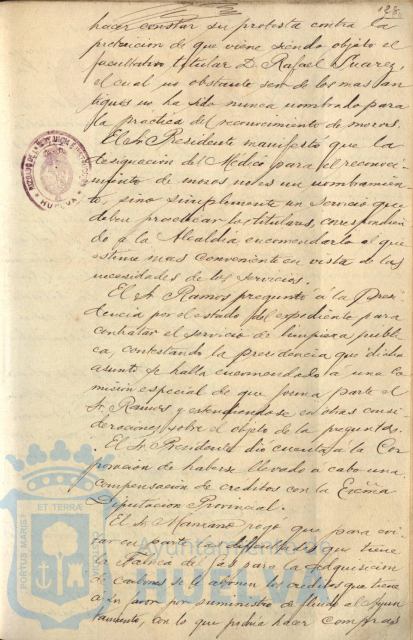 128.
hacer constar su protesta contra la
pretericion de que viene siendo objeto el
facultativo titular D. Rafael Suarez,
el cual no obstante ser de los mas an-
tiguos no ha sido nunca nombrado para
la practica del reconocimiento de mozos.
El Sr. Presidente manifestó que la
designacion del Medico para el reconoci-
miento de mozos no es un nombramien-
to, sino simplemente un servicio que
deben practicar los titulares, correspondien-
do a la Alcaldia encomendarlo al que
estime mas conveniente en vista de las
necesidades de los servicios.
El Sr. Ramos preguntó á la Presi-
dencia por el estado del expediente para
contratar el servicio de limpieza publi-
ca, contestando la presidencia que dicho
asunto se halla encomendado a una Co-
mision especial de que forma parte el
Sr. Ramos y extendiendose en otras consi-
deraciones sobre el objeto de la pregunta.
El Sr. Presidente dió cuenta á la Cor-
poracion de haberse llevado á cabo una
compensacion de creditos con la Excma
Diputacion Provincial.
El Sr. Manzano rogó que para evi-
tar en parte las dificultades que tiene
la Fabrica de Gas para la adquisicion
de carbones se le abonen los creditos que tiene
a su favor por suministro de fluido al Ayun-
tamiento, con lo que podria hacer compras
HUELVA
PORTUS MARIS
ET TERRAE
CUSTODIA
Ayuntamiento de
HUELVA